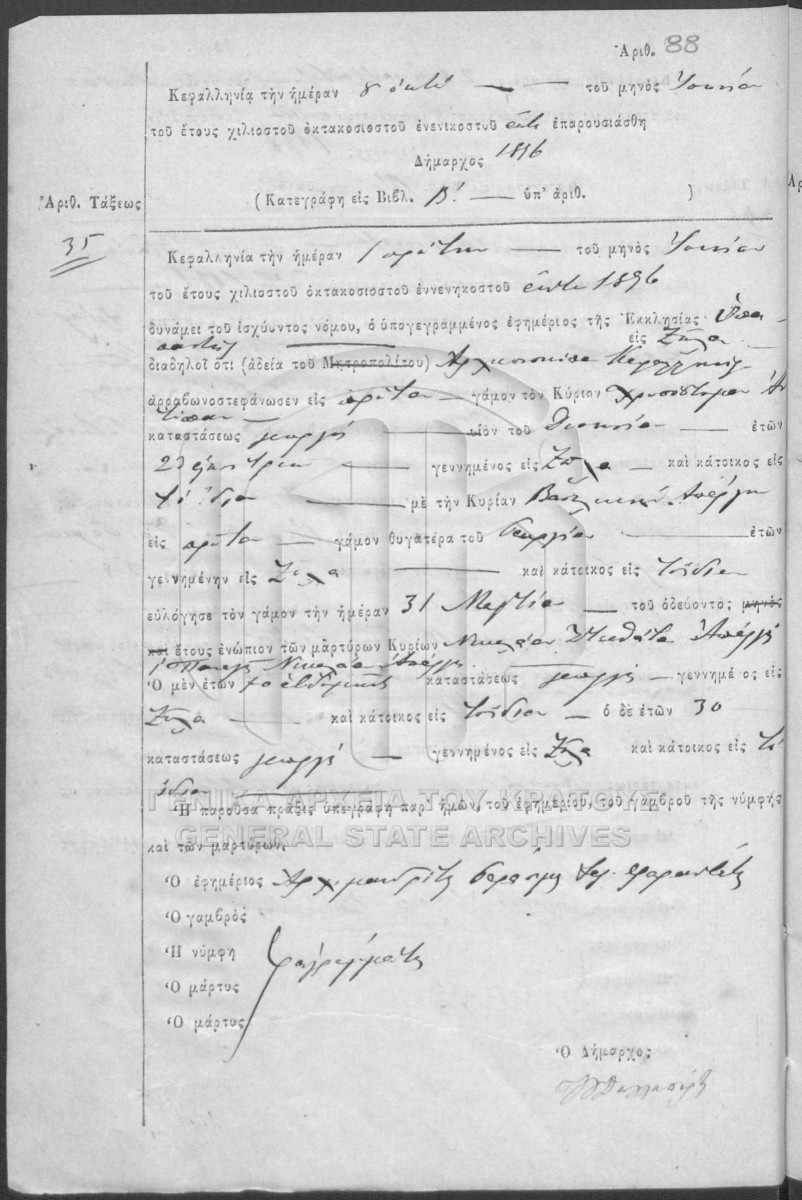 Ἀριθ. 88
Κεφαλληνία τὴν ἡμέραν 8 ὀκτώ — τοῦ μηνὸς Ἰουνίου
τοῦ ἔτους χιλιοστοῦ ὀκτακοσιοστοῦ ἐνενικοστοῦ ἕκτου ἐπαρουσιάσθη
Δήμαρχος 1896
Ἀριθ. Τάξεως
(Κατεγράφη εἰς Βιβλ. Β! — ὑπ' ἀριθ. )
35
Κεφαλληνία τὴν ἡμέραν 1 πρώτην — τοῦ μηνὸς Ἰουνίου
τοῦ ἔτους χιλιοστοῦ ὀκτακοσιοστοῦ ἐννενηκοστοῦ ἕκτου 1896
δυνάμει τοῦ ἰσχύοντος νόμου, ὁ ὑπογεγραμμένος ἐφημέριος τῆς Ἐκκλησίας Ὑπα
παντῆς — εἰς Ζόλα —
διαδηλοῖ ὅτι (ἀδεία τοῦ Μητροπολίτου) Ἀρχιεπισκόπου Κεφαλληνίας
ἀρραβωνοστεφάνωσεν εἰς πρῶτον — γάμον τὸν Κύριον Χρυσόστομον
καταστάσεως γεωργὸς — υἱὸν τοῦ Διονυσίου — ἐτῶν
23 εἴκοσι τριῶν — γεννημένος εἰς Ζόλα — καὶ κάτοικος εἰς
τὸ ἴδιον — μὲ τὴν Κυρίαν Βασιλικὴν Ἀπέργη
εἰς πρῶτον — γάμον θυγατέρα τοῦ Γεωργίου — ἐτῶν
γεννημένην εἰς Ζόλα — καὶ κάτοικος εἰς τὸ ἴδιον
εὐλόγησε τὸν γάμον τὴν ἡμέραν 31 Μαρτίου — τοῦ ὁδεύοντος μηνὸς
καὶ ἔτους ἐνώπιον τῶν μαρτύρων Κυρίων Νικολάου Ἀπέργη
Παναγῆ Νικολάου Ἀπέργη
Ὁ μὲν ἐτῶν 70 ἑβδομήκοντα καταστάσεως γεωργὸς — γεννημένος εἰς
Ζόλα — καὶ κάτοικος εἰς τὸ ἴδιον — ὁ δὲ ἐτῶν 30 —
καταστάσεως γεωργὸς — γεννημένος εἰς Ζόλα καὶ κάτοικος εἰς τὸ
ἴδιον
ΓΕΝΙΚΑ ΑΡΧΕΙΑ ΤΟΥ ΚΡΑΤΟΥΣ
Ἡ παροῦσα πρᾶξις ὑπεγράφη παρ' ἡμῶν, τοῦ ἐφημερίου, τοῦ γαμβροῦ τῆς νύμφης
GENERAL STATE ARCHIVES
καὶ τῶν μαρτύρων.
Ὁ ἐφημέριος Ἀρχιμανδρίτης Γεράσιμος
Ὁ γαμβρὸς
Ἡ νύμφη
ἀγράμματοι
Ὁ μάρτυς
Ὁ μάρτυς
Ὁ Δήμαρχος